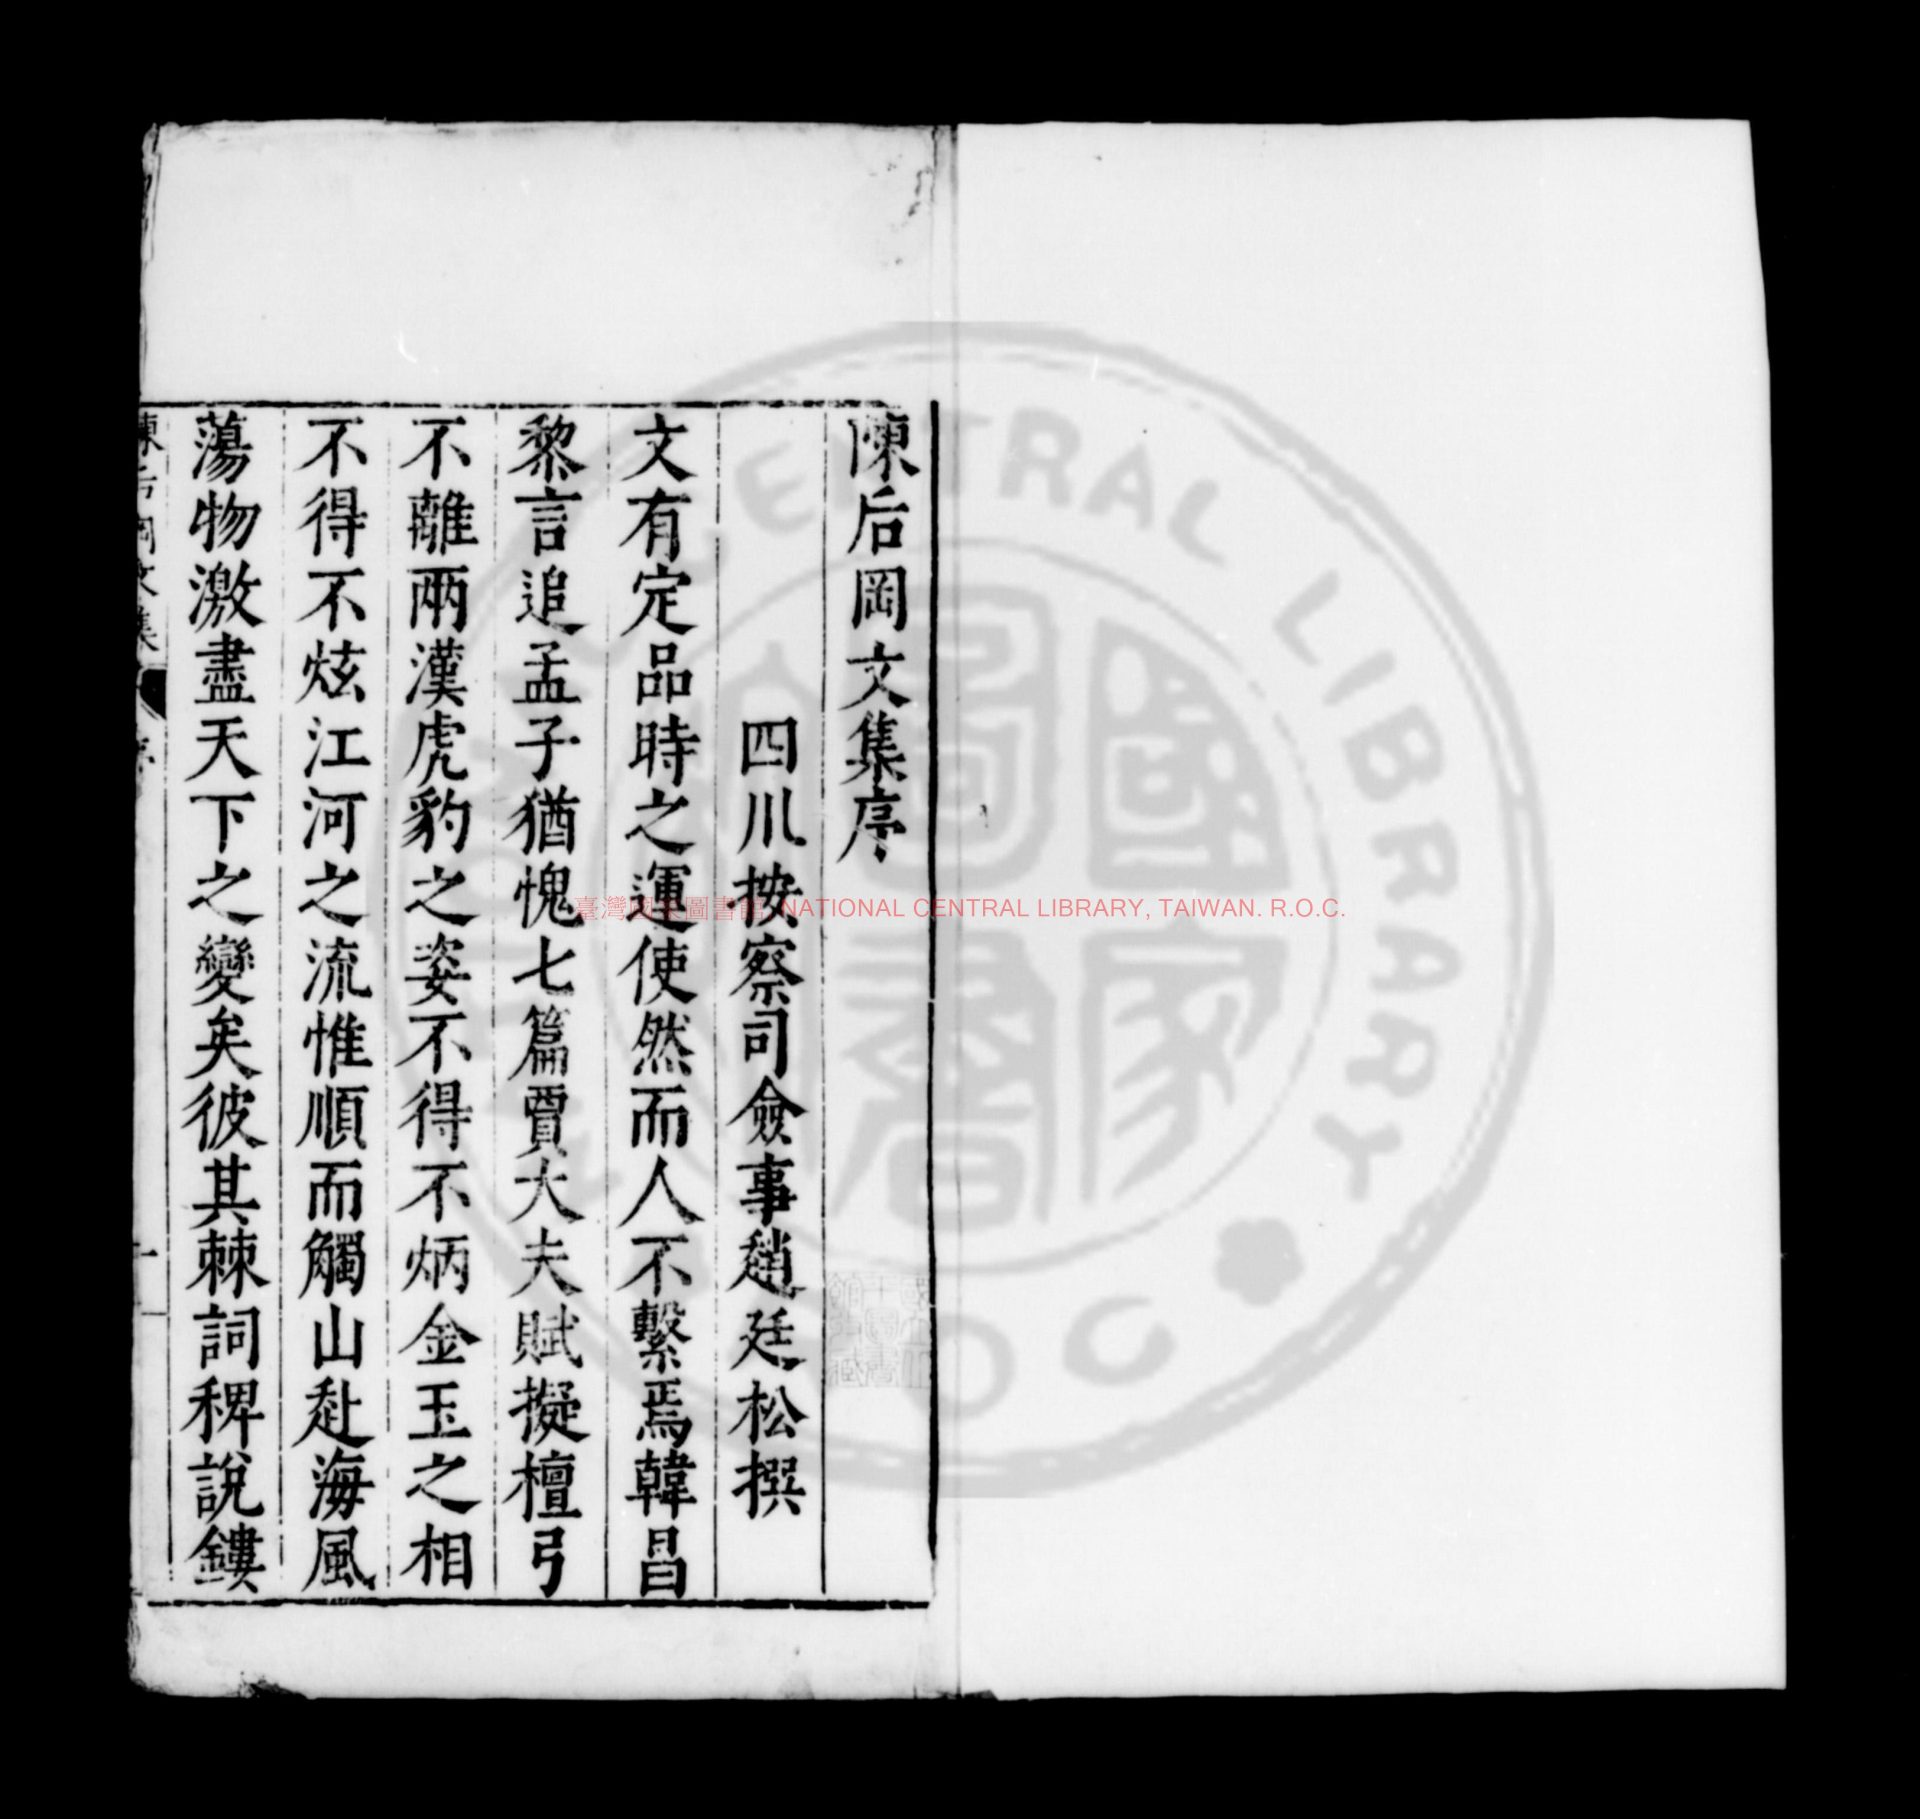 陳后岡文集序
四川按察司僉事趙廷松撰
文有定品時之運使然而人不繫焉韓昌
黎言追孟子猶愧七篇賈大夫賦擬檀弓
不離兩漢虎豹之姿不得不炳金玉之相
不得不炫江河之流惟順而觸山赴海風
蕩物激盡天下之變矣彼其棘詞稗說鏤
陳后岡文集
序
一
臺灣國家圖書館, NATIONAL CENTRAL LIBRARY, TAIWAN. R.O.C.
CENTRAL LIBRARY
國家圖書